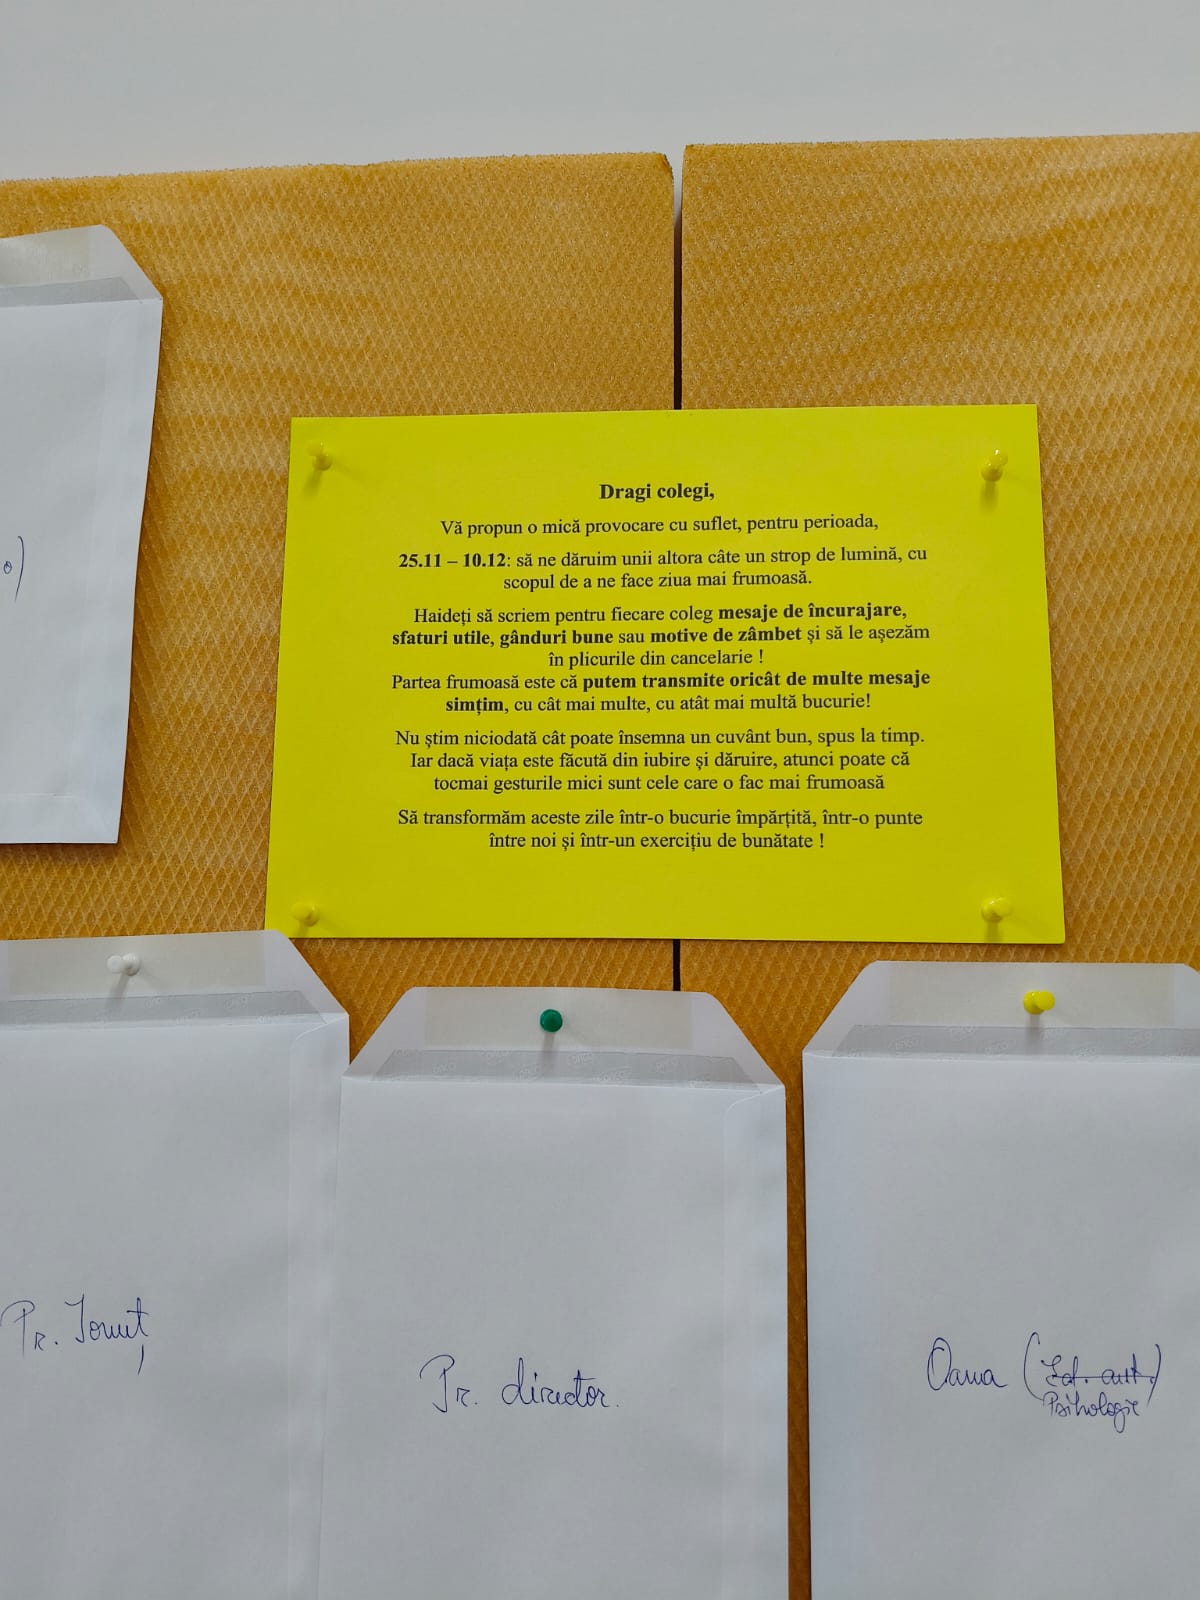 Dragi colegi,
Vă propun o mică provocare cu suflet, pentru perioada,
25.11 – 10.12: să ne dăruim unii altora câte un strop de lumină, cu
scopul de a ne face ziua mai frumoasă.
Haideți să scriem pentru fiecare coleg mesaje de încurajare,
sfaturi utile, gânduri bune sau motive de zâmbet și să le așezăm
în plicurile din cancelarie !
Partea frumoasă este că putem transmite oricât de multe mesaje
simțim, cu cât mai multe, cu atât mai multă bucurie!
Nu știm niciodată cât poate însemna un cuvânt bun, spus la timp.
Iar dacă viața este făcută din iubire și dăruire, atunci poate că
tocmai gesturile mici sunt cele care o fac mai frumoasă
Să transformăm aceste zile într-o bucurie împărțită, într-o punte
între noi și într-un exercițiu de bunătate !
o)
Pr. Ionuț
Pr. director.
Oana (
Psihologie